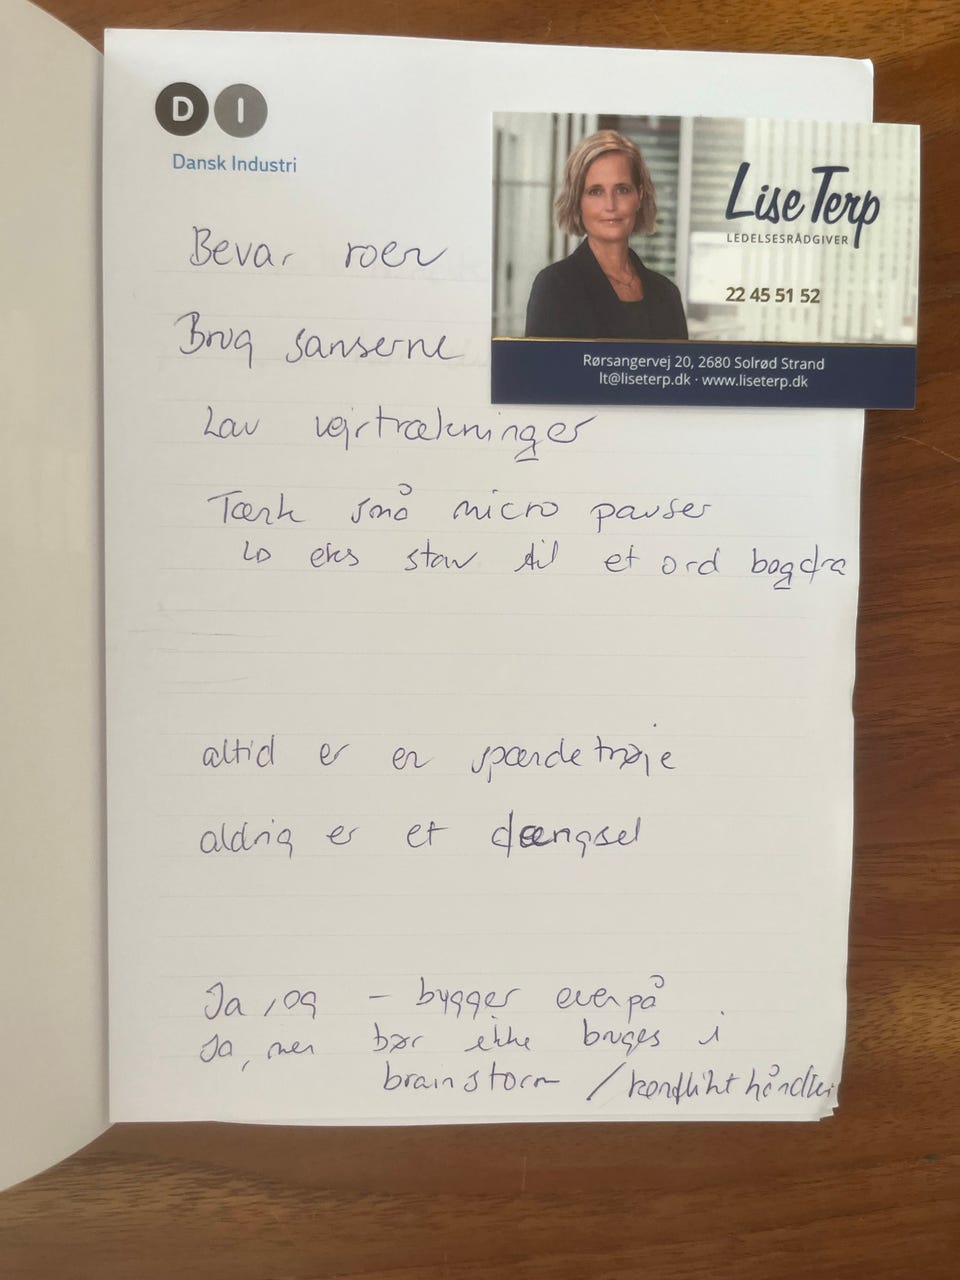 D I
Dansk Industri
Lise Terp
LEDELSESRÅDGIVER
22 45 51 52
Rørsangervej 20, 2680 Solrød Strand
lt@liseterp.dk · www.liseterp.dk
Bevar roen
Brug sanserne
Lav vejrtrækninger
Tænk små micro pauser
eks stav til et ord bagfra
altid er en spændetrøje
aldrig er et fængsel
Ja, og - bygger ovenpå
Ja, men bør ikke bruges i
brainstorm / konflikt